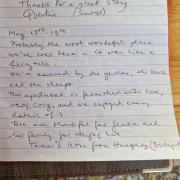 Thanks for a great stay
May 17th - 19th
Probably the most wonderful place
we've ever been - it was like a
fairytale.
We're amazed by the garden, the
and the sheep.
The apartment is furnished with love,
very cosy, and we enjoyed every
detail of it.
We are thankful for peace and
his family for staying here
from Hungary (Budapest)